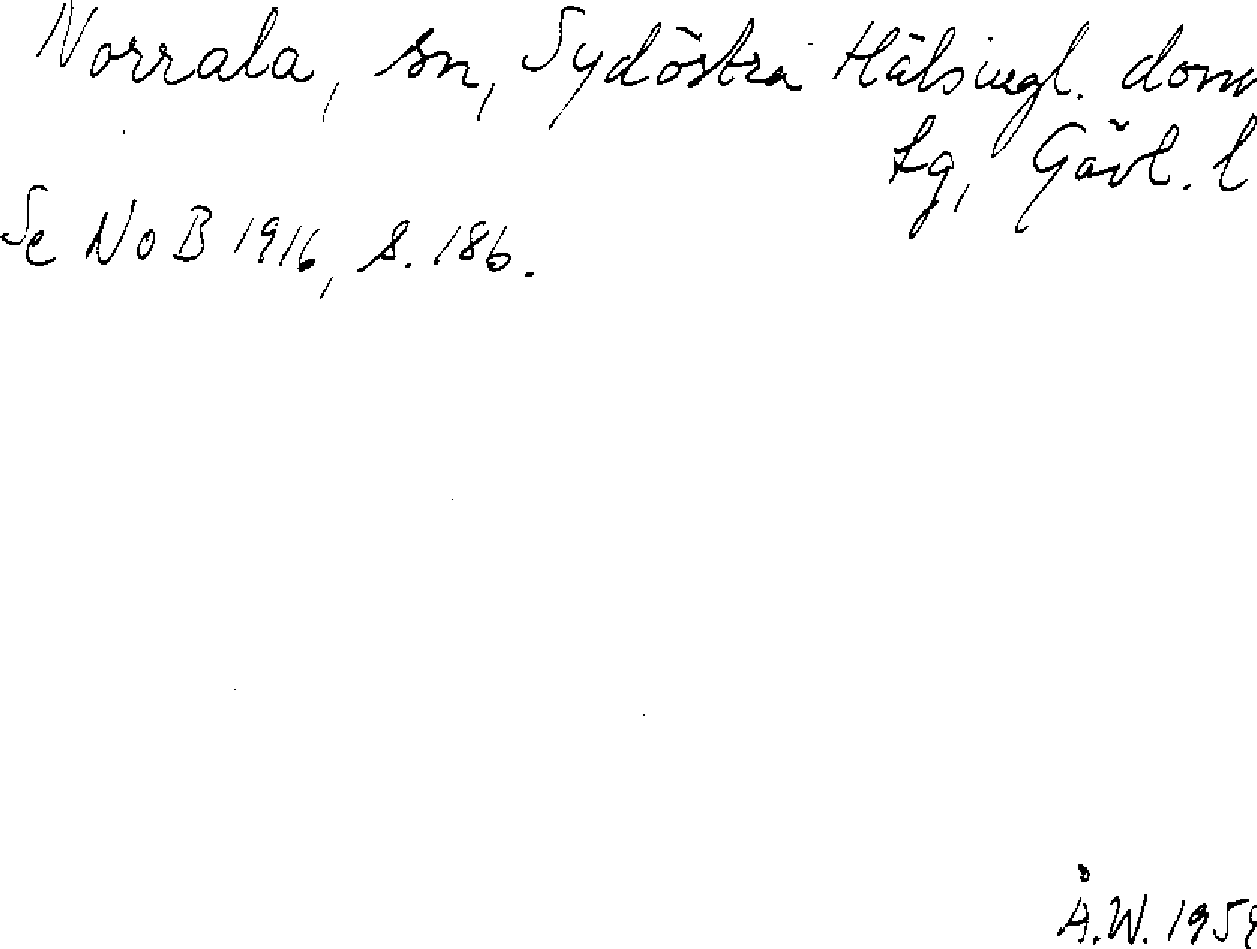 Norrala, sn, Sydöstra Hälsingl. dom
tg, Gävl. l
Se NoB 1916, s. 186.
Å.W. 195